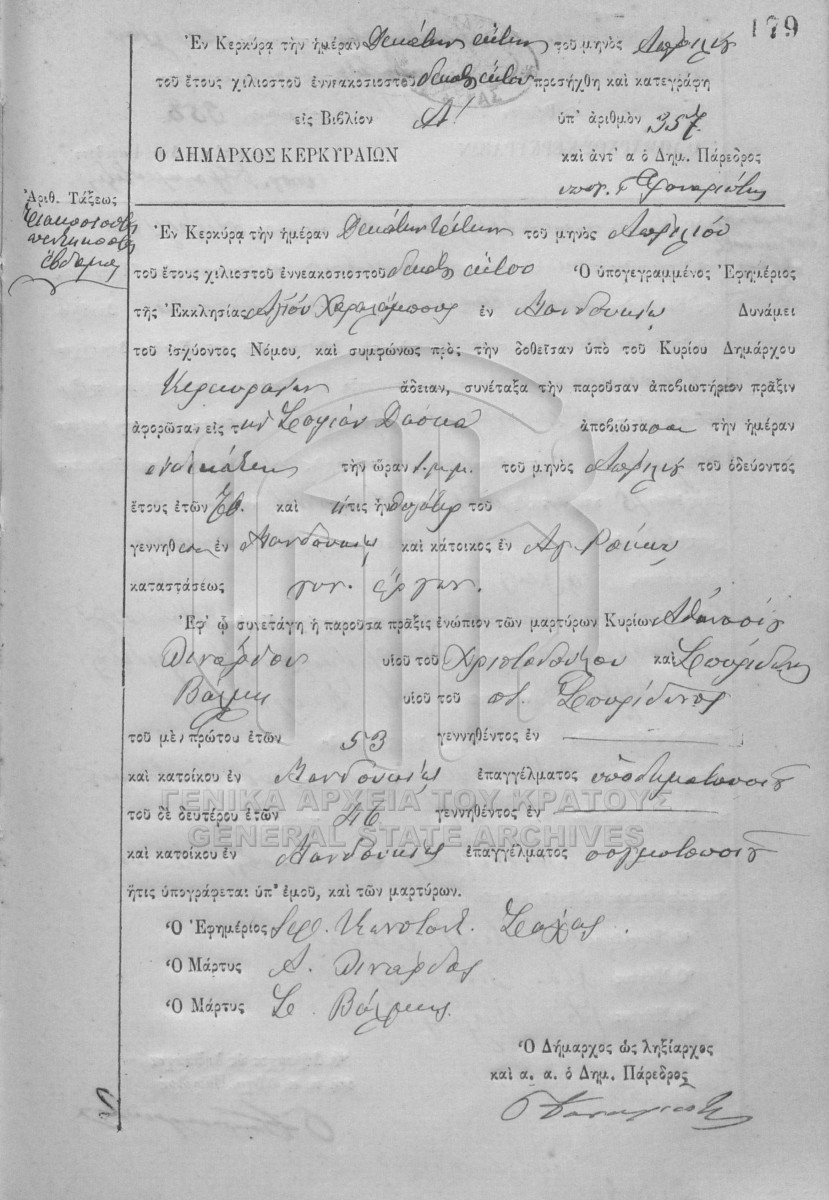 179
Ἐν Κερκύρᾳ τὴν ἡμέραν Δεκάτην ἕκτην τοῦ μηνὸς Ἀπριλίου
τοῦ ἔτους χιλιοστοῦ ἐννεακοσιοστοῦ δεκάτου ἕκτου προσήχθη καὶ κατεγράφη
εἰς Βιβλίον Α! ὑπ' ἀριθμὸν 357
Ο ΔΗΜΑΡΧΟΣ ΚΕΡΚΥΡΑΙΩΝ καὶ ἀντ' α ὁ Δημ. Πάρεδρος
υπογ.
Ἀριθ. Τάξεως
Τριακοσιοστὸς
πεντηκοστὸς
ἕβδομος
Ἐν Κερκύρᾳ τὴν ἡμέραν Δεκάτην τρίτην τοῦ μηνὸς Ἀπριλίου
τοῦ ἔτους χιλιοστοῦ ἐννεακοσιοστοῦ δεκάτου ἕκτου Ὁ ὑπογεγραμμένος Ἐφημέριος
τῆς Ἐκκλησίας Ἁγίου Χαραλάμπους ἐν Μανδουκίῳ Δυνάμει
τοῦ ἰσχύοντος Νόμου, καὶ συμφώνως πρὸς τὴν δοθεῖσαν ὑπὸ τοῦ Κυρίου Δημάρχου
Κερκυραίων ἄδειαν, συνέταξα τὴν παροῦσαν ἀποβιωτήριον πρᾶξιν
ἀφορῶσαν εἰς τὴν Σοφίαν ἀποβιώσασαν τὴν ἡμέραν
ἑνδεκάτην τὴν ὥραν μ.μ. τοῦ μηνὸς Ἀπριλίου τοῦ ὁδεύοντος
ἔτους ἐτῶν 70. καὶ ἥτις ἦν θυγάτηρ τοῦ
γεννηθεῖσα ἐν Μανδουκίῳ καὶ κάτοικος ἐν Ἁγ. Ρόκκῳ
καταστάσεως
Ἐφ' ᾧ συνετάγη ἡ παροῦσα πρᾶξις ἐνώπιον τῶν μαρτύρων Κυρίων Ἀθανασίου
Πινάρδου υἱοῦ τοῦ Χριστοδούλου καὶ Σπυρίδωνος
Βάλμη υἱοῦ τοῦ π. Σπυρίδωνος
τοῦ μὲν πρώτου ἐτῶν 53 γεννηθέντος ἐν
καὶ κατοίκου ἐν Μανδουκίῳ ἐπαγγέλματος ὑποδηματοποιοῦ
τοῦ δὲ δευτέρου ἐτῶν 46 γεννηθέντος ἐν
καὶ κατοίκου ἐν Μανδουκίῳ ἐπαγγέλματος σαγματοποιοῦ
ἥτις ὑπογράφεται ὑπ' ἐμοῦ, καὶ τῶν μαρτύρων.
Ὁ Ἐφημέριος Ἱερ. Κωνσταντ.
Ὁ Μάρτυς Α. Πινάρδος
Ὁ Μάρτυς Σ. Βάλμης
Ὁ Δήμαρχος ὡς ληξίαρχος
καὶ α. α. ὁ Δημ. Πάρεδρος
ΓΕΝΙΚΑ ΑΡΧΕΙΑ ΤΟΥ ΚΡΑΤΟΥΣ
GENERAL STATE ARCHIVES